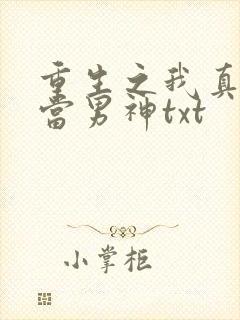 重生之我真
当男神txt
小掌柜